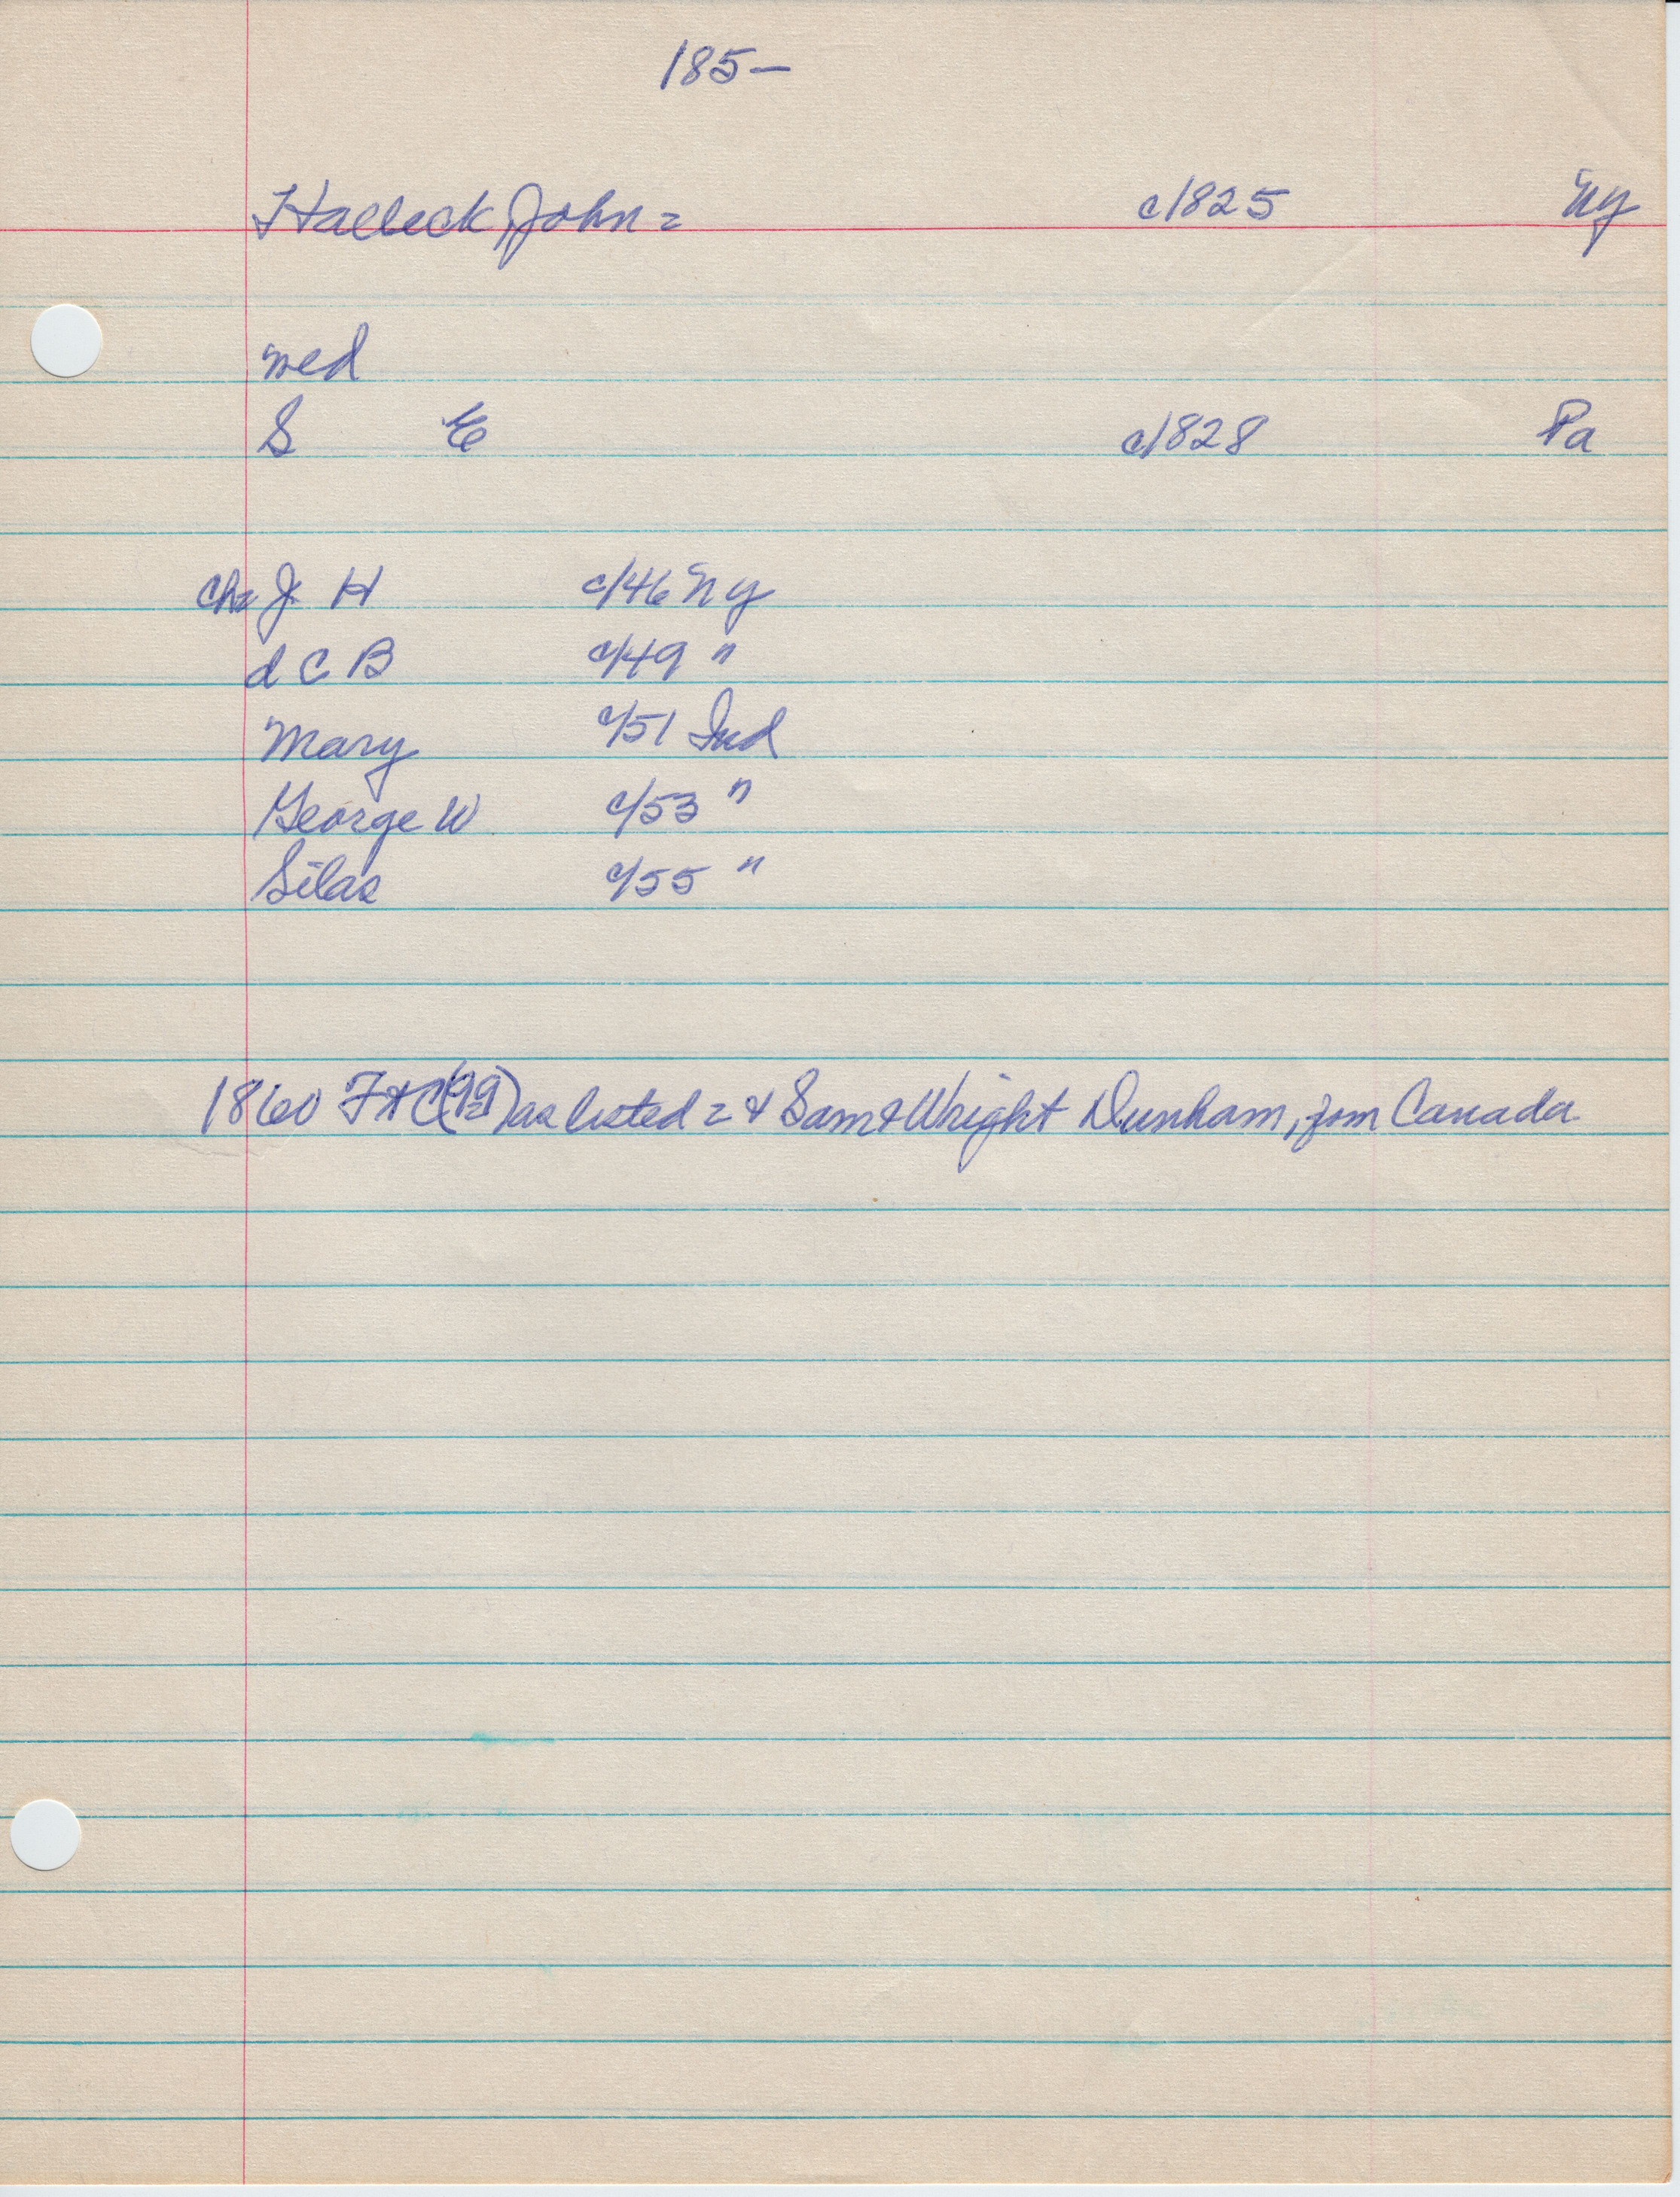 185-
Halleck, John = c/1825 Ny
med
S E c/1828 Pa
Ch= J. H c/46 Ny
d C B c/49 "
Mary c/51 Ind
George W c/53 "
Silas c/55 "
1860 (99) as listed = & Sam & Wright Dunham, from Canada